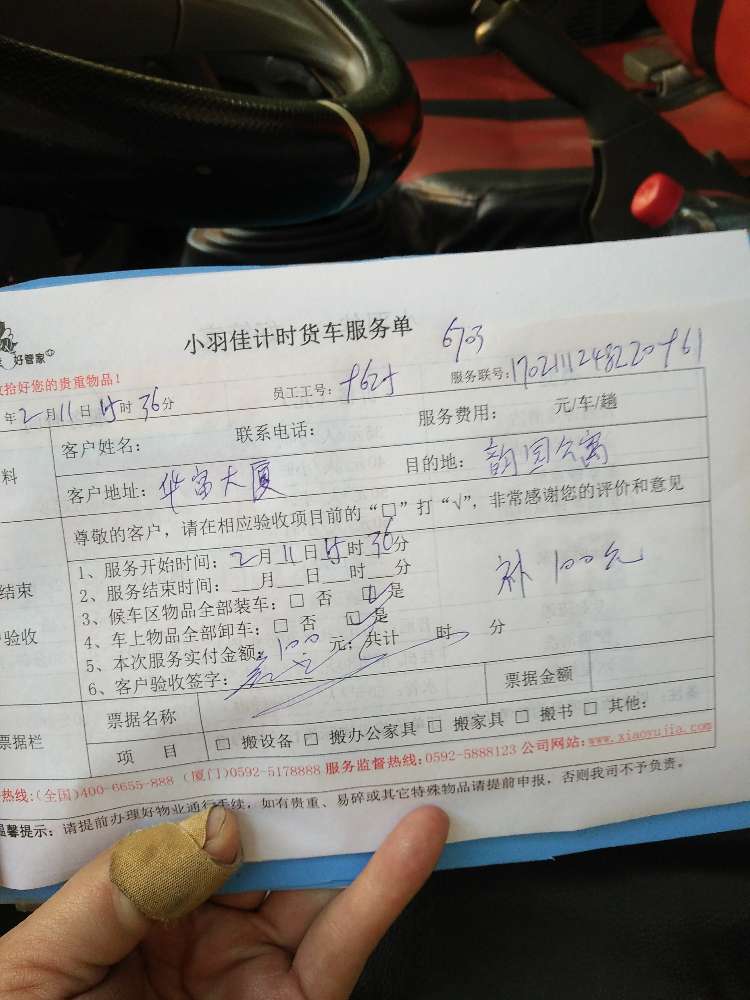 小羽佳计时货车服务单
6703
好管家
收拾好您的贵重物品！
年2月11日15时36分
员工工号：
服务联号：
客户姓名：
联系电话：
服务费用： 元/车/趟
料
客户地址：华富大厦
目的地：韵园公寓
尊敬的客户，请在相应验收项目前的“□”打“√”，非常感谢您的评价和意见
1、服务开始时间：2月11日15时36分
结束
2、服务结束时间：___月___日___时___分
补100元
3、候车区物品全部装车：□ 否 □是
验收
4、车上物品全部卸车：□ 否 □是
5、本次服务实付金额：100元；共计 时 分
6、客户验收签字：
票据栏
票据名称
票据金额
项 目
□ 搬设备 □ 搬办公家具 □ 搬家具 □ 搬书 □ 其他：
热线:(全国)400-6655-888 (厦门)0592-5178888 服务监督热线:0592-5888123 公司网站:www.xiaoyujia.com
温馨提示：请提前办理好物业通行手续，如有贵重、易碎或其它特殊物品请提前申报，否则我司不予负责。